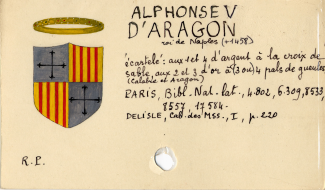 ALPHONSE V
D'ARAGON
roi de Naples (+1458)
écartelé : aux 1 et 4 d'argent à la croix de
sable, aux 2 et 3 d'or à (3 ou) 4 pals de gueules
(Calabre et Aragon)
PARIS, Bibl. Nat. lat., 4.802, 6.309, 8533
8557, 17584.
DELISLE, Cab. des Mss., I, p. 220
R.P.